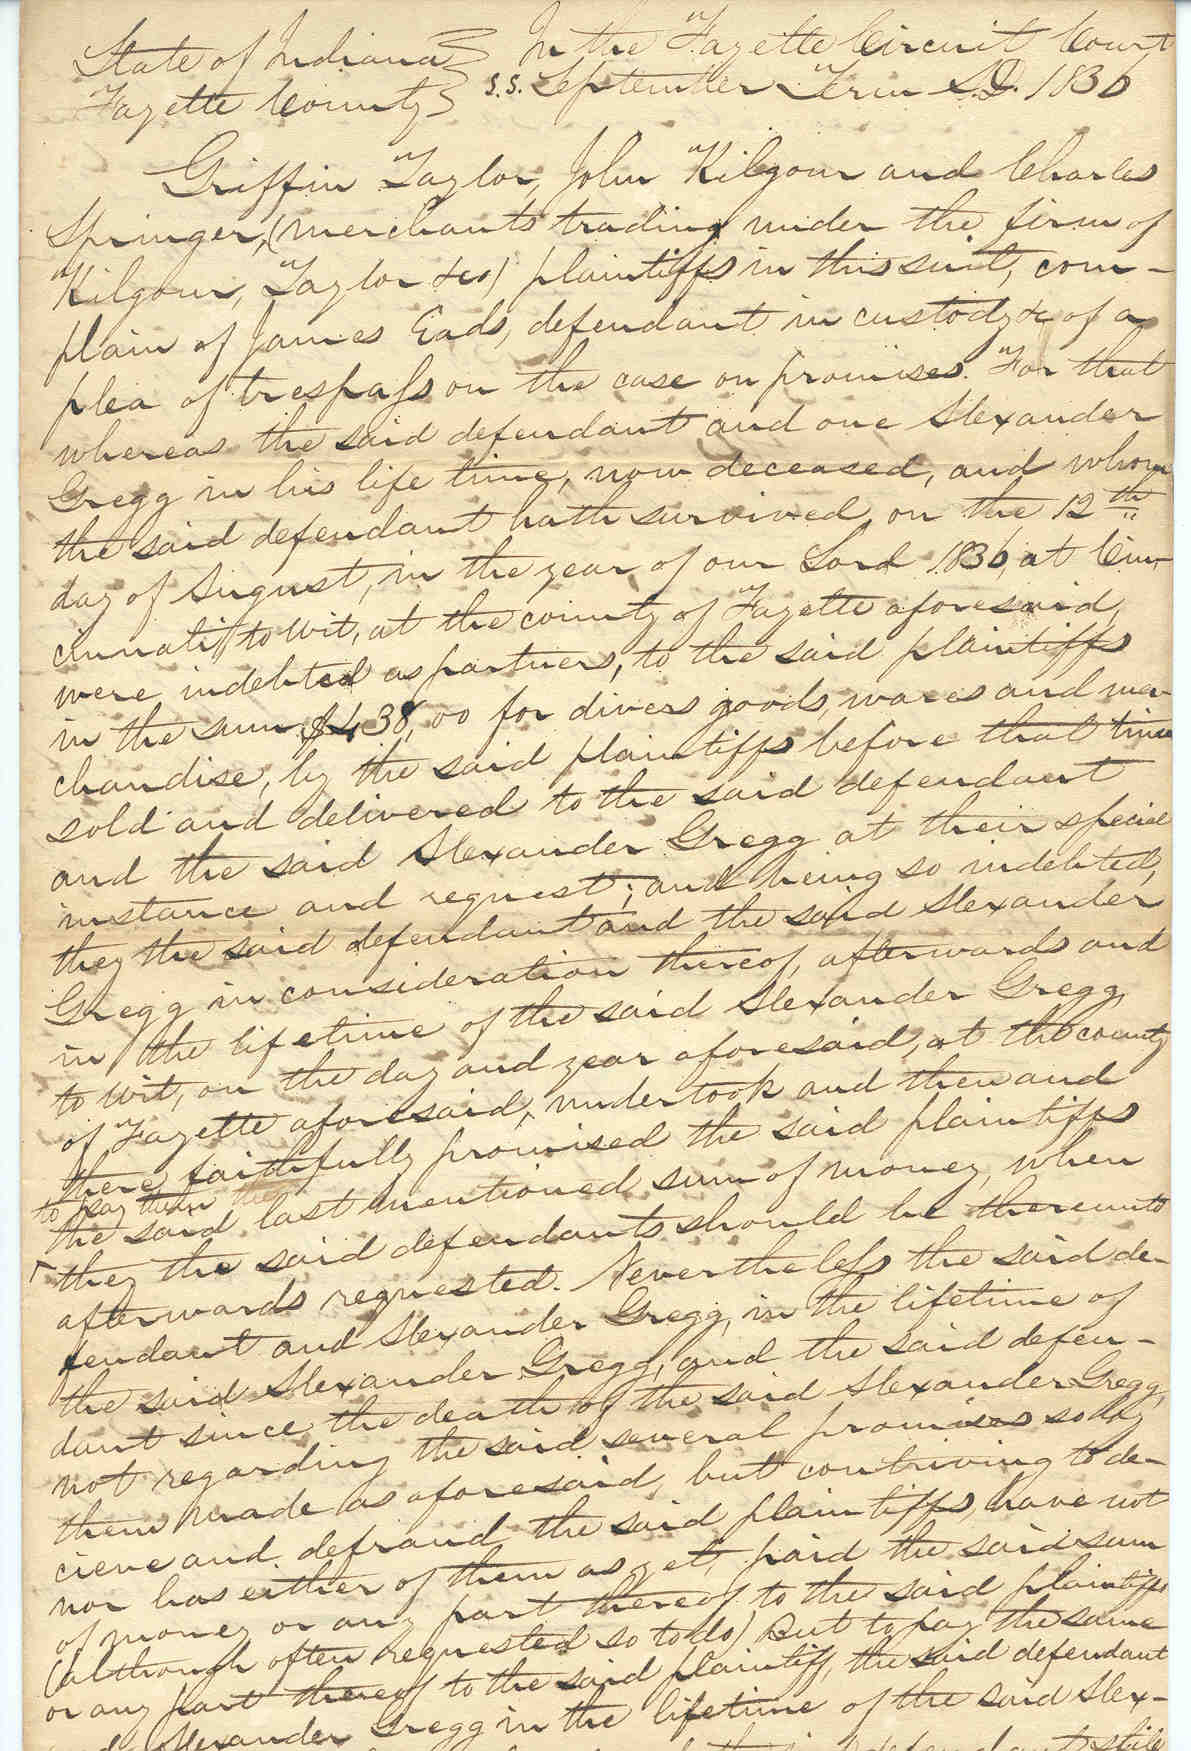 State of Indiana } In the Fayette Circuit Court
Fayette County } s.s. September Term A.D. 1836
Griffin Taylor, John Kilgour and Charles
Springer, (merchants trading under the firm of
Kilgour, Taylor & co) plaintiffs in this suit, com-
plain of James Eads, defendant in custody &c of a
plea of trespass on the case on promises. For that
whereas the said defendant and one Alexander
Gregg in his life time, now deceased, and whom
the said defendant hath survived on the 12th
day of August, in the year of our Lord 1836, at Cin-
cinnati, to wit, at the county of Fayette aforesaid,
were indebted as partners, to the said plaintiffs
in the sum $438,00 for divers goods, wares and mer-
chandise, by the said plaintiffs before that time
sold and delivered to the said defendant
and the said Alexander Gregg at their special
instance and request; and being so indebted,
they the said defendant and the said Alexander
Gregg in consideration thereof, afterwards and
in the lifetime of the said Alexander Gregg
to wit, on the day and year aforesaid, at the county
of Fayette aforesaid, undertook and then and
there faithfully promised the said plaintiffs
to pay them
the said last mentioned sum of money, when
they the said defendants should be thereunto
afterwards requested. Nevertheless the said de-
fendant and Alexander Gregg, in the lifetime of
the said Alexander Gregg, and the said defen-
dant since the death of the said Alexander Gregg,
not regarding the said several promises so by
them made as aforesaid, but contriving to de-
cieve and defraud the said plaintiffs, have not
nor has either of them as yet, paid the said sum
of money or any part thereof to the said plaintiffs
(although often requested so to do) But to pay the same
or any part thereof to the said plaintiff, the said defendant
Alexander Gregg in the lifetime of the said Alex-
defendant still